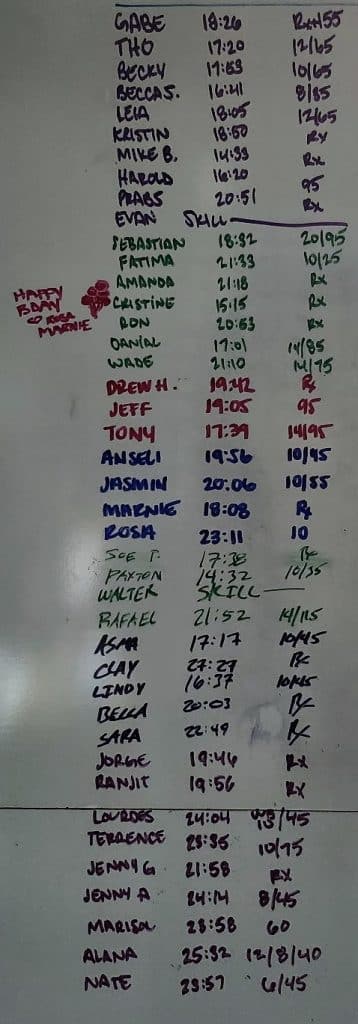 GABE 18:26 Rx+155
THO 17:20 12/65
BECKY 17:53 10/65
BECCA S. 16:41 8/35
LEIA 18:05 12/65
KRISTIN 18:50 Rx
MIKE B. 14:33 Rx
HAROLD 16:20 95
PRABS 20:51 Rx
EVAN SKILL
SEBASTIAN 18:32 20/95
FATIMA 21:33 10/25
AMANDA 21:18 Rx
CRISTINE 15:15 Rx
HAPPY
BDAY
ROSA
MARNIE
RON 20:53 Rx
DANIAL 17:01 14/85
WADE 21:10 14/75
DREW H. 19:42 Rx
JEFF 19:05 95
TONY 17:39 14/95
ANSELI 19:56 10/45
JASMIN 20:06 10/55
MARNIE 18:08 Rx
ROSA 23:11 10
JOE T. 17:38 Rx
PAXTON 14:32 10/35
WALTER SKILL
RAFAEL 21:52 14/115
ASMA 17:17 10/45
CLAY 27:27 Rx
LINDY 16:37
BECCA 20:03 Rx
SARA 22:49 Rx
JORGE 19:46 Rx
RANJIT 19:56 Rx
LOURDES 24:04 /45
TERRENCE 23:35 10/75
JENNY G 21:58 RX
JENNY A 24:14 8/45
MARISOL 23:58 60
ALANA 25:32 12/8/40
NATE 23:57 6/45